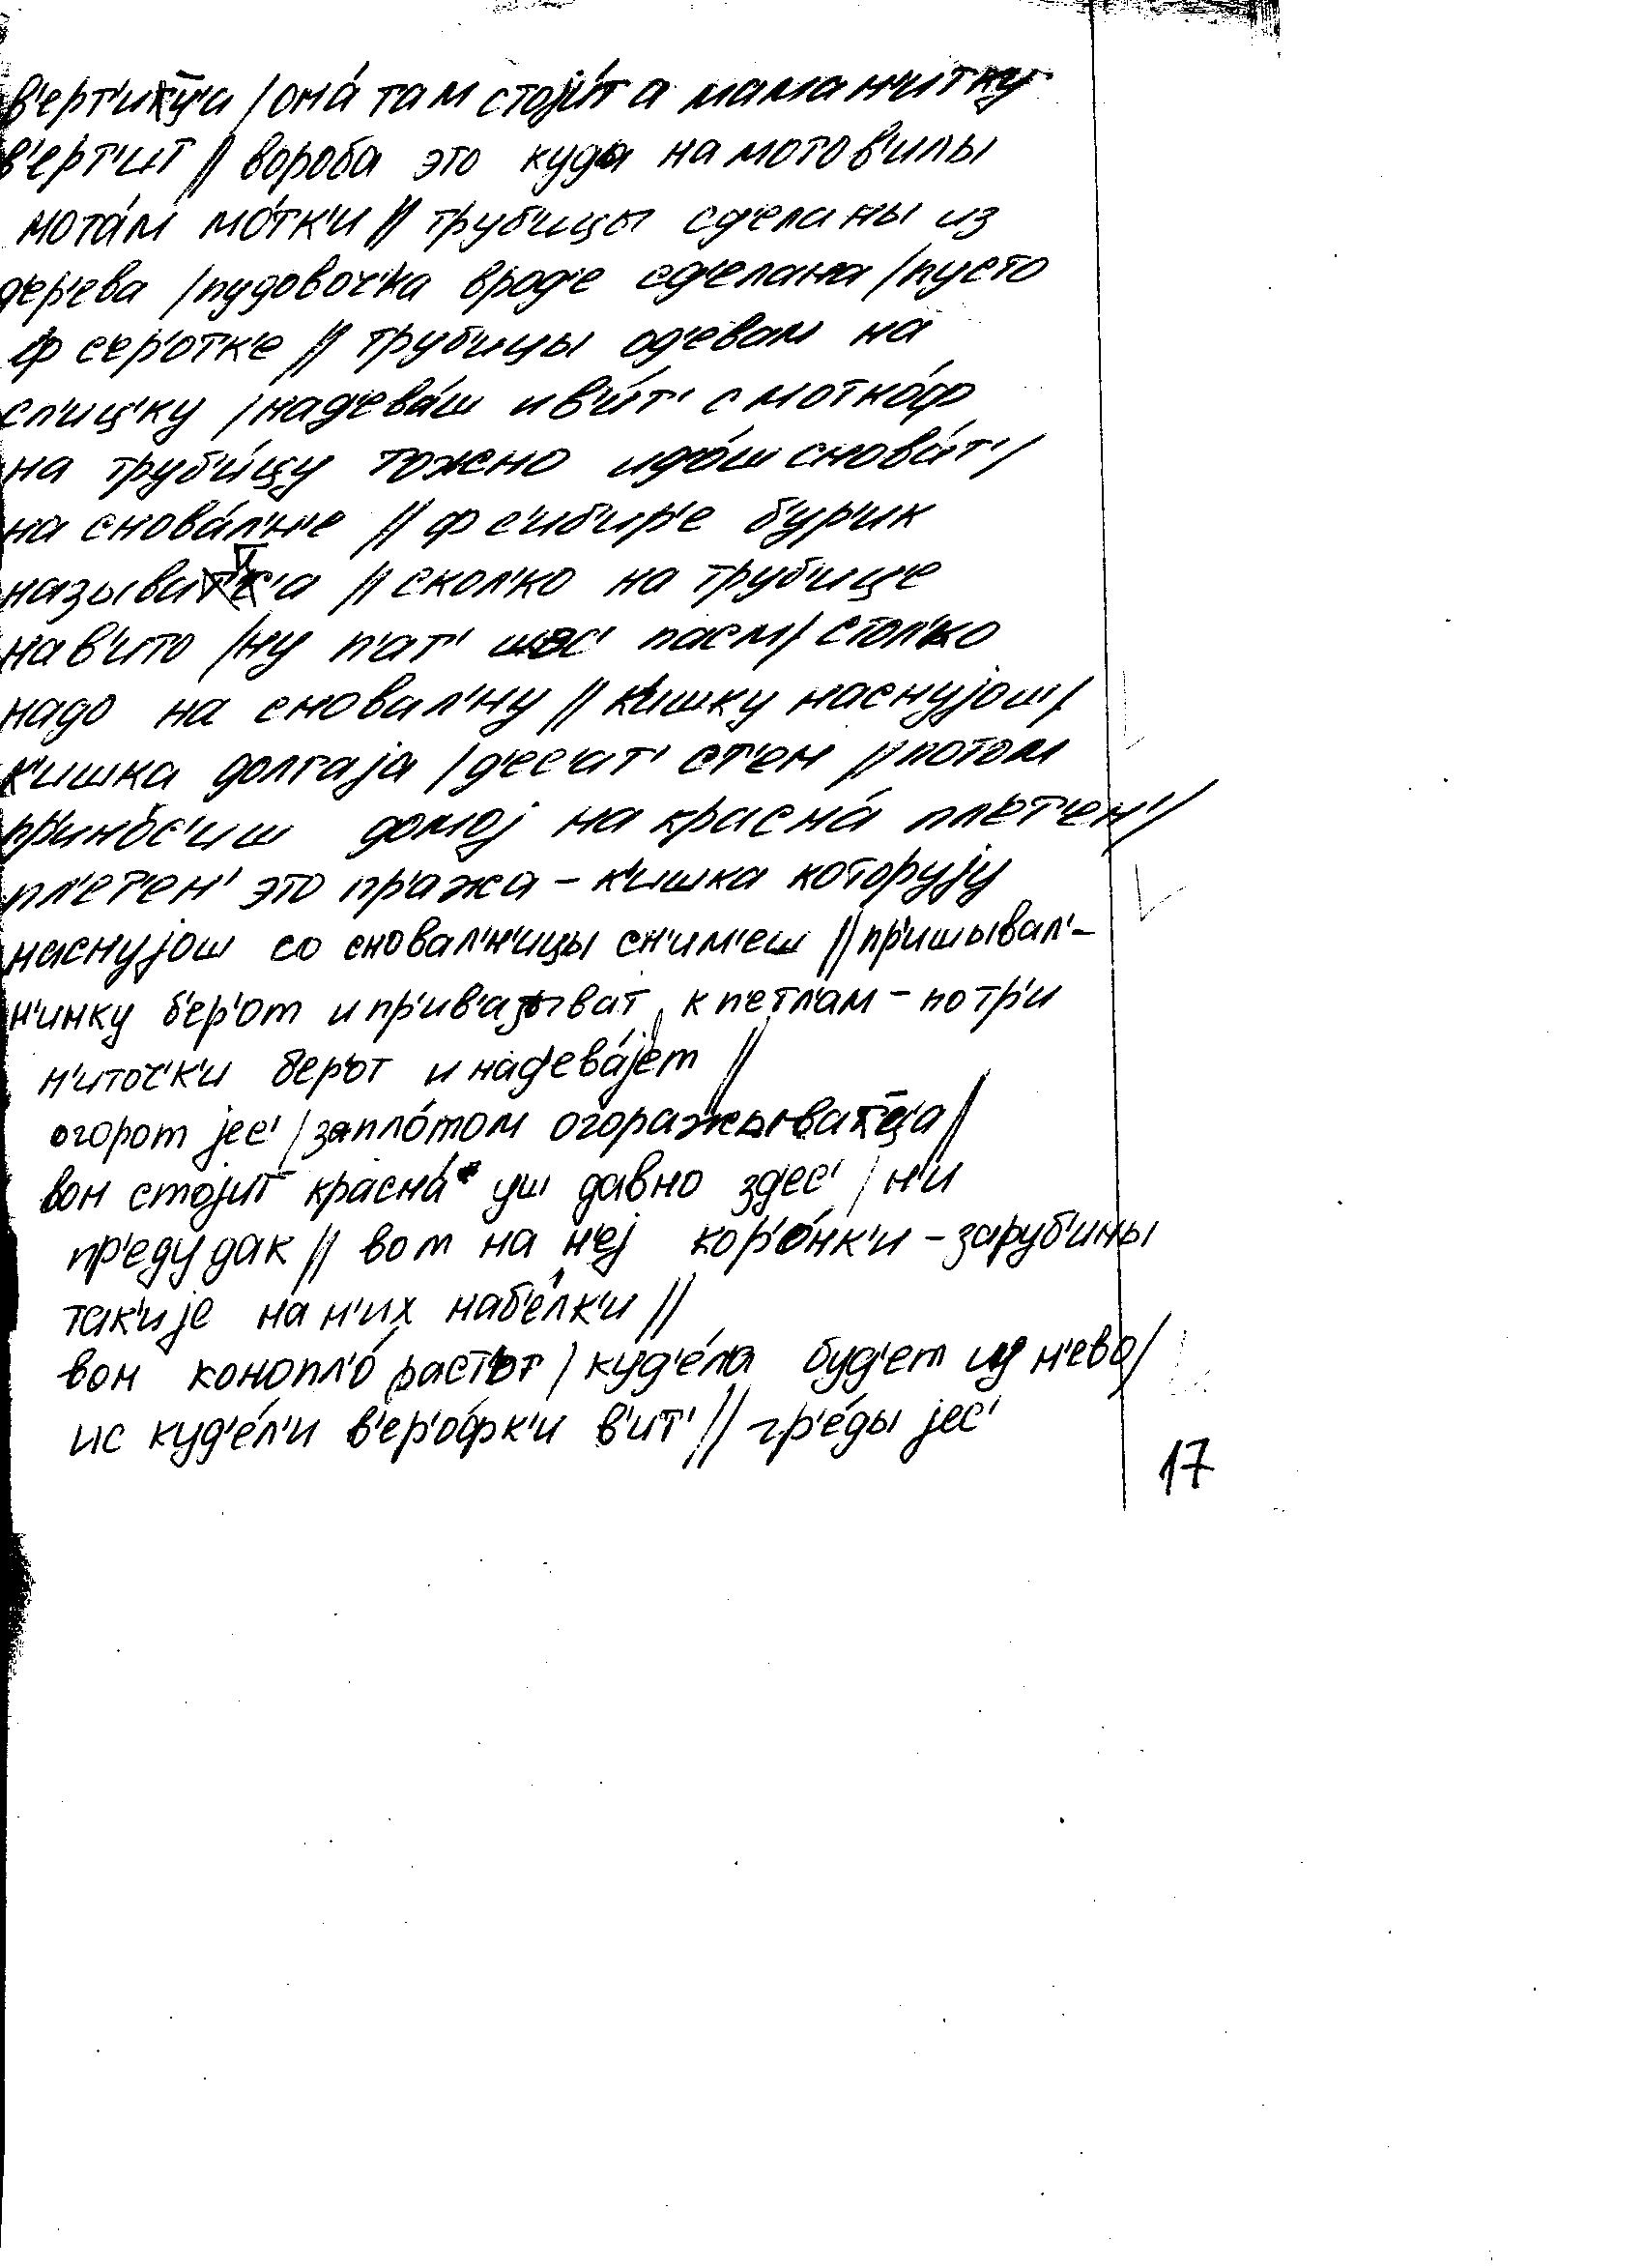 в'ерт'иц̄а /она́ там стоjи́т а мама н'итку
в'ерт'ит // вороба это куда на мотов'илы
мота́м мо́тк'и // труб'ицы сд'еланы из
д'ер'ева /пудовоч'ка врод'е сд'елана /пусто
ф с'ер'отк'е // труб'ицы од'евам на
сп'иц'ку /над'ева́ш и в'и́т' с мотко́ф
на труб'и́цу тожно идо́ш снова́т'/
на снова́л'н'е // ф с'иб'ир'е бур'ик
называц̄а // скол'ко на труб'иц'е
нав'ито /ну п'ат' шос' пасм/ стол'ко
надо на сновал'ну // к'ишку наснуjош/
к'ишка долгаjа /д'ес'ат' ст'ен // потом
пр'инос'иш домоj на красна́ пл'ет'ен'/
пл'ет'ен' это пр'ажа – к'ишка которуjу
наснуjош со сновал'н'ицы сн'им'еш // пр'ишывал'–
н'инку б'ер'от и пр'ив'азыват к п'етл'ам – по тр'и
н'иточ'к'и бер'от и над'ева́jет //
огорот jес' /запло́том огоражыватц̄а//
вон стоjит красна́ уш давно здес' / н'и
пр'еду дак // вот на н'еj кор'о́нк'и – заруб'ины
так'иjе на н'их наб'е́лк'и //
вон конопл'о́ раст'от / куд'е́ла буд'ет из н'ево/
ис куд'е́л'и в'ер'о́фк'и в'ит' // гр'е́ды jес'
17